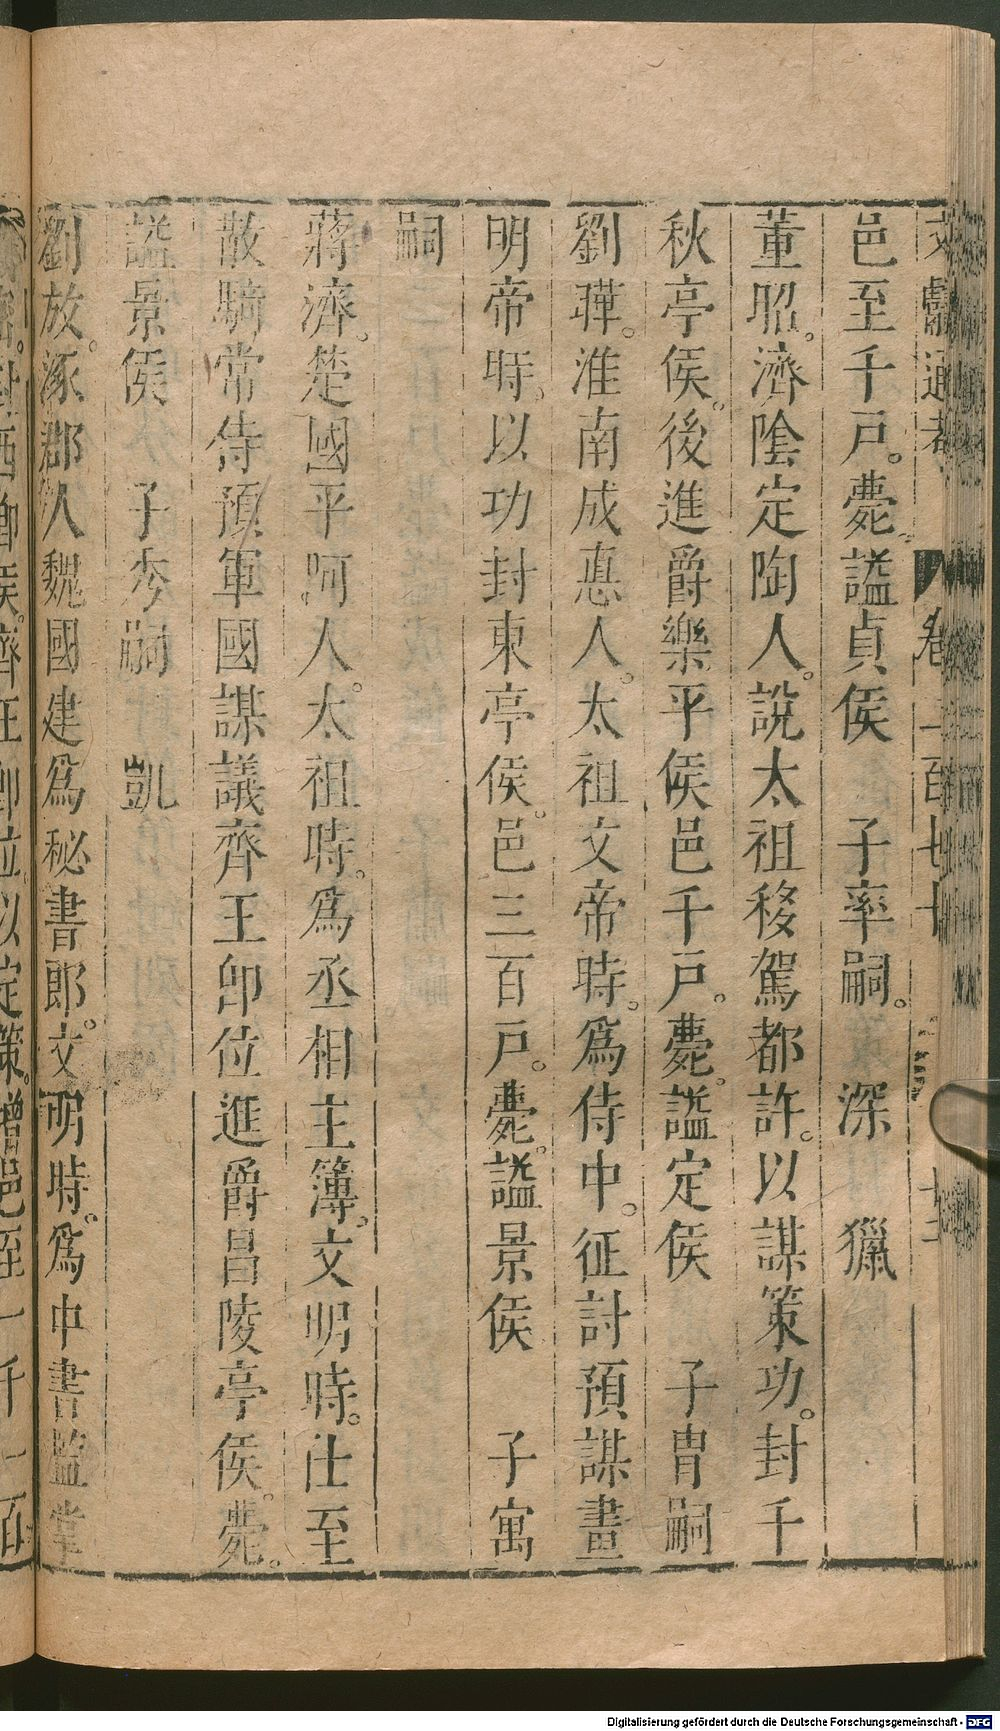 文獻通考 卷二百七十 十二
邑至千戸。薨。諡貞侯 子率嗣。 深 獵
董昭。濟陰定陶人。說太祖移駕都許。以謀策功。封千
秋亭侯。後進爵樂平侯邑千戸。薨。諡定侯 子胄嗣
劉曄。淮南成悳人。太祖文帝時。爲侍中。征討預謀畫
明帝時。以功封東亭侯。邑三百戸。薨。諡景侯 子寓
嗣
蔣濟。楚國平阿人。太祖時。爲丞相主簿。文明時。仕至
散騎常侍預軍國謀議齊王卽位進爵昌陵亭侯。薨。
諡景侯 子秀嗣 凱
劉放。涿郡人魏國建爲秘書郎。文明時。爲中書監掌
封西鄉侯。齊王卽位以定策。增邑至一千一百
Digitalisierung gefördert durch die Deutsche Forschungsgemeinschaft - DFG